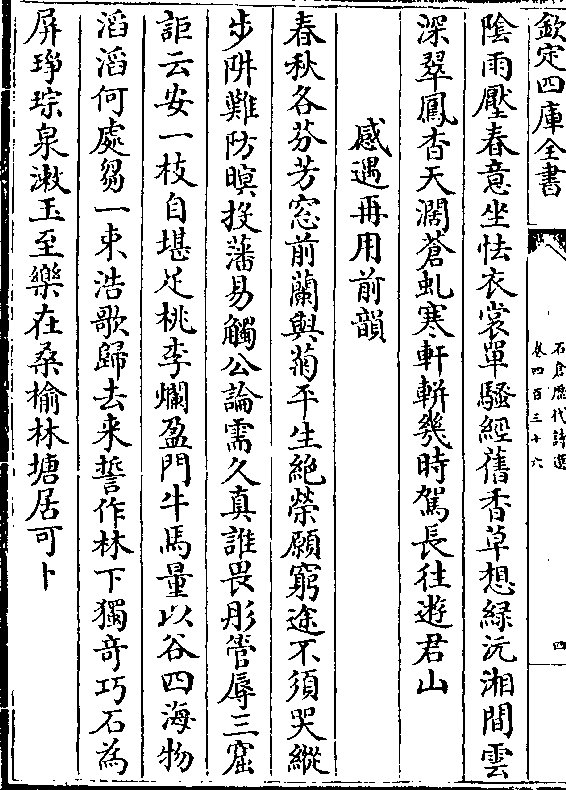 欽定四庫全書
石倉歴代詩選
卷四百三十六
四
陰雨壓春意坐怯衣裳單騷經舊香草想緑沅湘間雲
深翠鳳杳天濶蒼虬寒軒輧幾時駕長往遊君山
感遇再用前韻
春秋各芬芳窓前蘭與菊平生絶榮願窮途不須哭縱
步阱難防暝投藩易觸公論需久真誰畏彤管辱三窟
詎云安一枝自堪足桃李爛盈門牛馬量以谷四海物
滔滔何處芻一束浩歌歸去来誓作林下獨竒巧石為
屏琤琮泉漱玉至樂在桑榆林塘居可卜